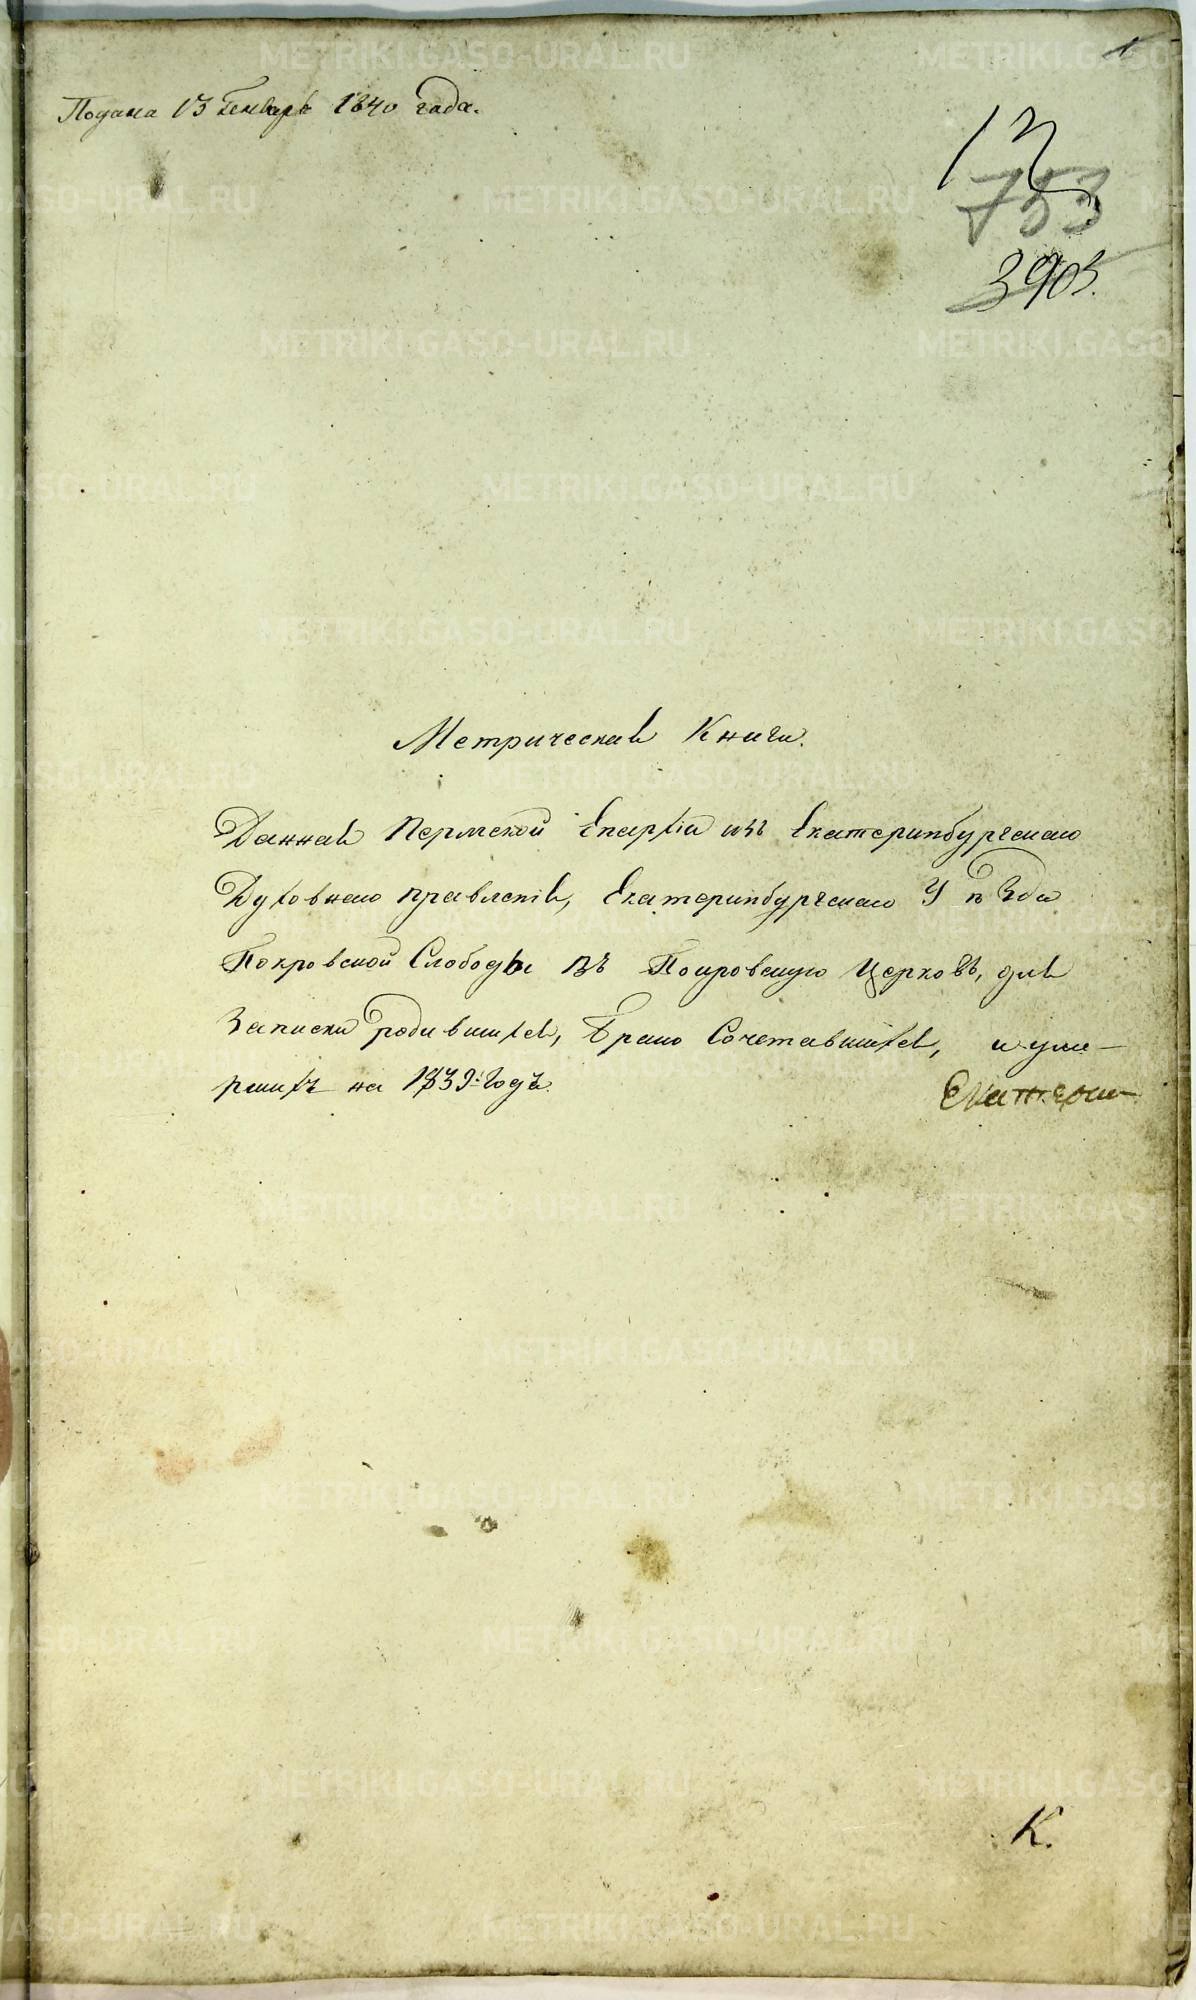 1
Подана 13 Генваря 1840 года.
13
753
3903.
Метрическая Книга.
Данная Пермской Епархіи изъ Екатеринбургскаго
Духовнаго правленія, Екатеринбургскаго Уѣзда
Покровской Слободы въ Покровскую Церковь, для
Записки родившихся, Брако Сочетавшихся, и уме-
ршихъ на 1839й Годъ.
Екатерин-
К.